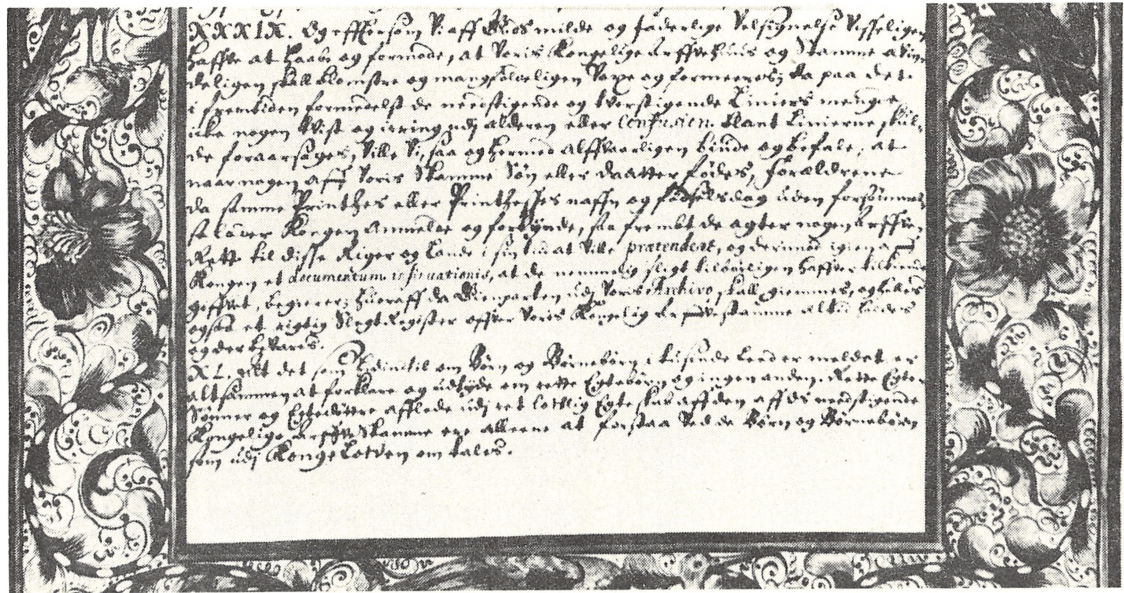 XXXIX. Og efftersom Vi aff Guds milde og faderlige Velsignelse visseligen
haffve at haabe og formode, at Voris Kongelige Arffvehuus og Stamme
deligen skall blomstre og mangfoldeligen Voxe og formeeris; Da paa det
i fremtiden formedelst de nedstigende og Opstigende Liniers mengde
icke nogen tvist og irring udj alderen eller Confusion blant Linierne skul-
de foraarsages, Ville Vi, saa og hermed alffvaarligen biude og befale, at
naar nogen aff Voris Stamme Søn eller daatter fødes, forældrene
da samme Printzes eller Printzesses naffn og fødselsdag uden forsømmelse
Kongen Anmelde og forkynde, saa fremt de agter nogen arffve
Rett til disse Riger og Lande i sin tid at ville prætendere, og derimod igien aff
Kongen et documentum insinuationis, at de nemmelig sligt tilbørligen haffver tilkiende
giffvet, begierer; hvoraff da Gienparten udj Voris Archivo skall giemmes, og
ogsaa et rigtig Slegt Register offver Voris Kongelig Arffve stamme altid holdes
og der bevares.
XL. Alt det som hidindtil om Børn og Børnebørn i tusinde Leed er meldet, er
altsammen at forklare og udtyde om rette Egtebørn og ingen anden. Rette Egte
Sønner og Egtedøttre afflede udj ret lovlig Egteskab aff den aff os nedstigende
Kongelige Arffve Stamme ere alleene at forstaa ved de Børn og Børnebørn
som udj Kongeloven om tales.